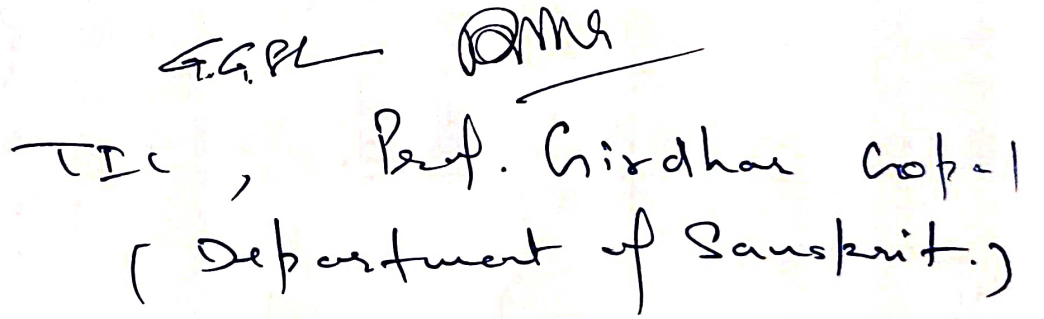 G.G.PL
TIC, Prof. Girdhar Gopal
(Department of Sanskrit.)